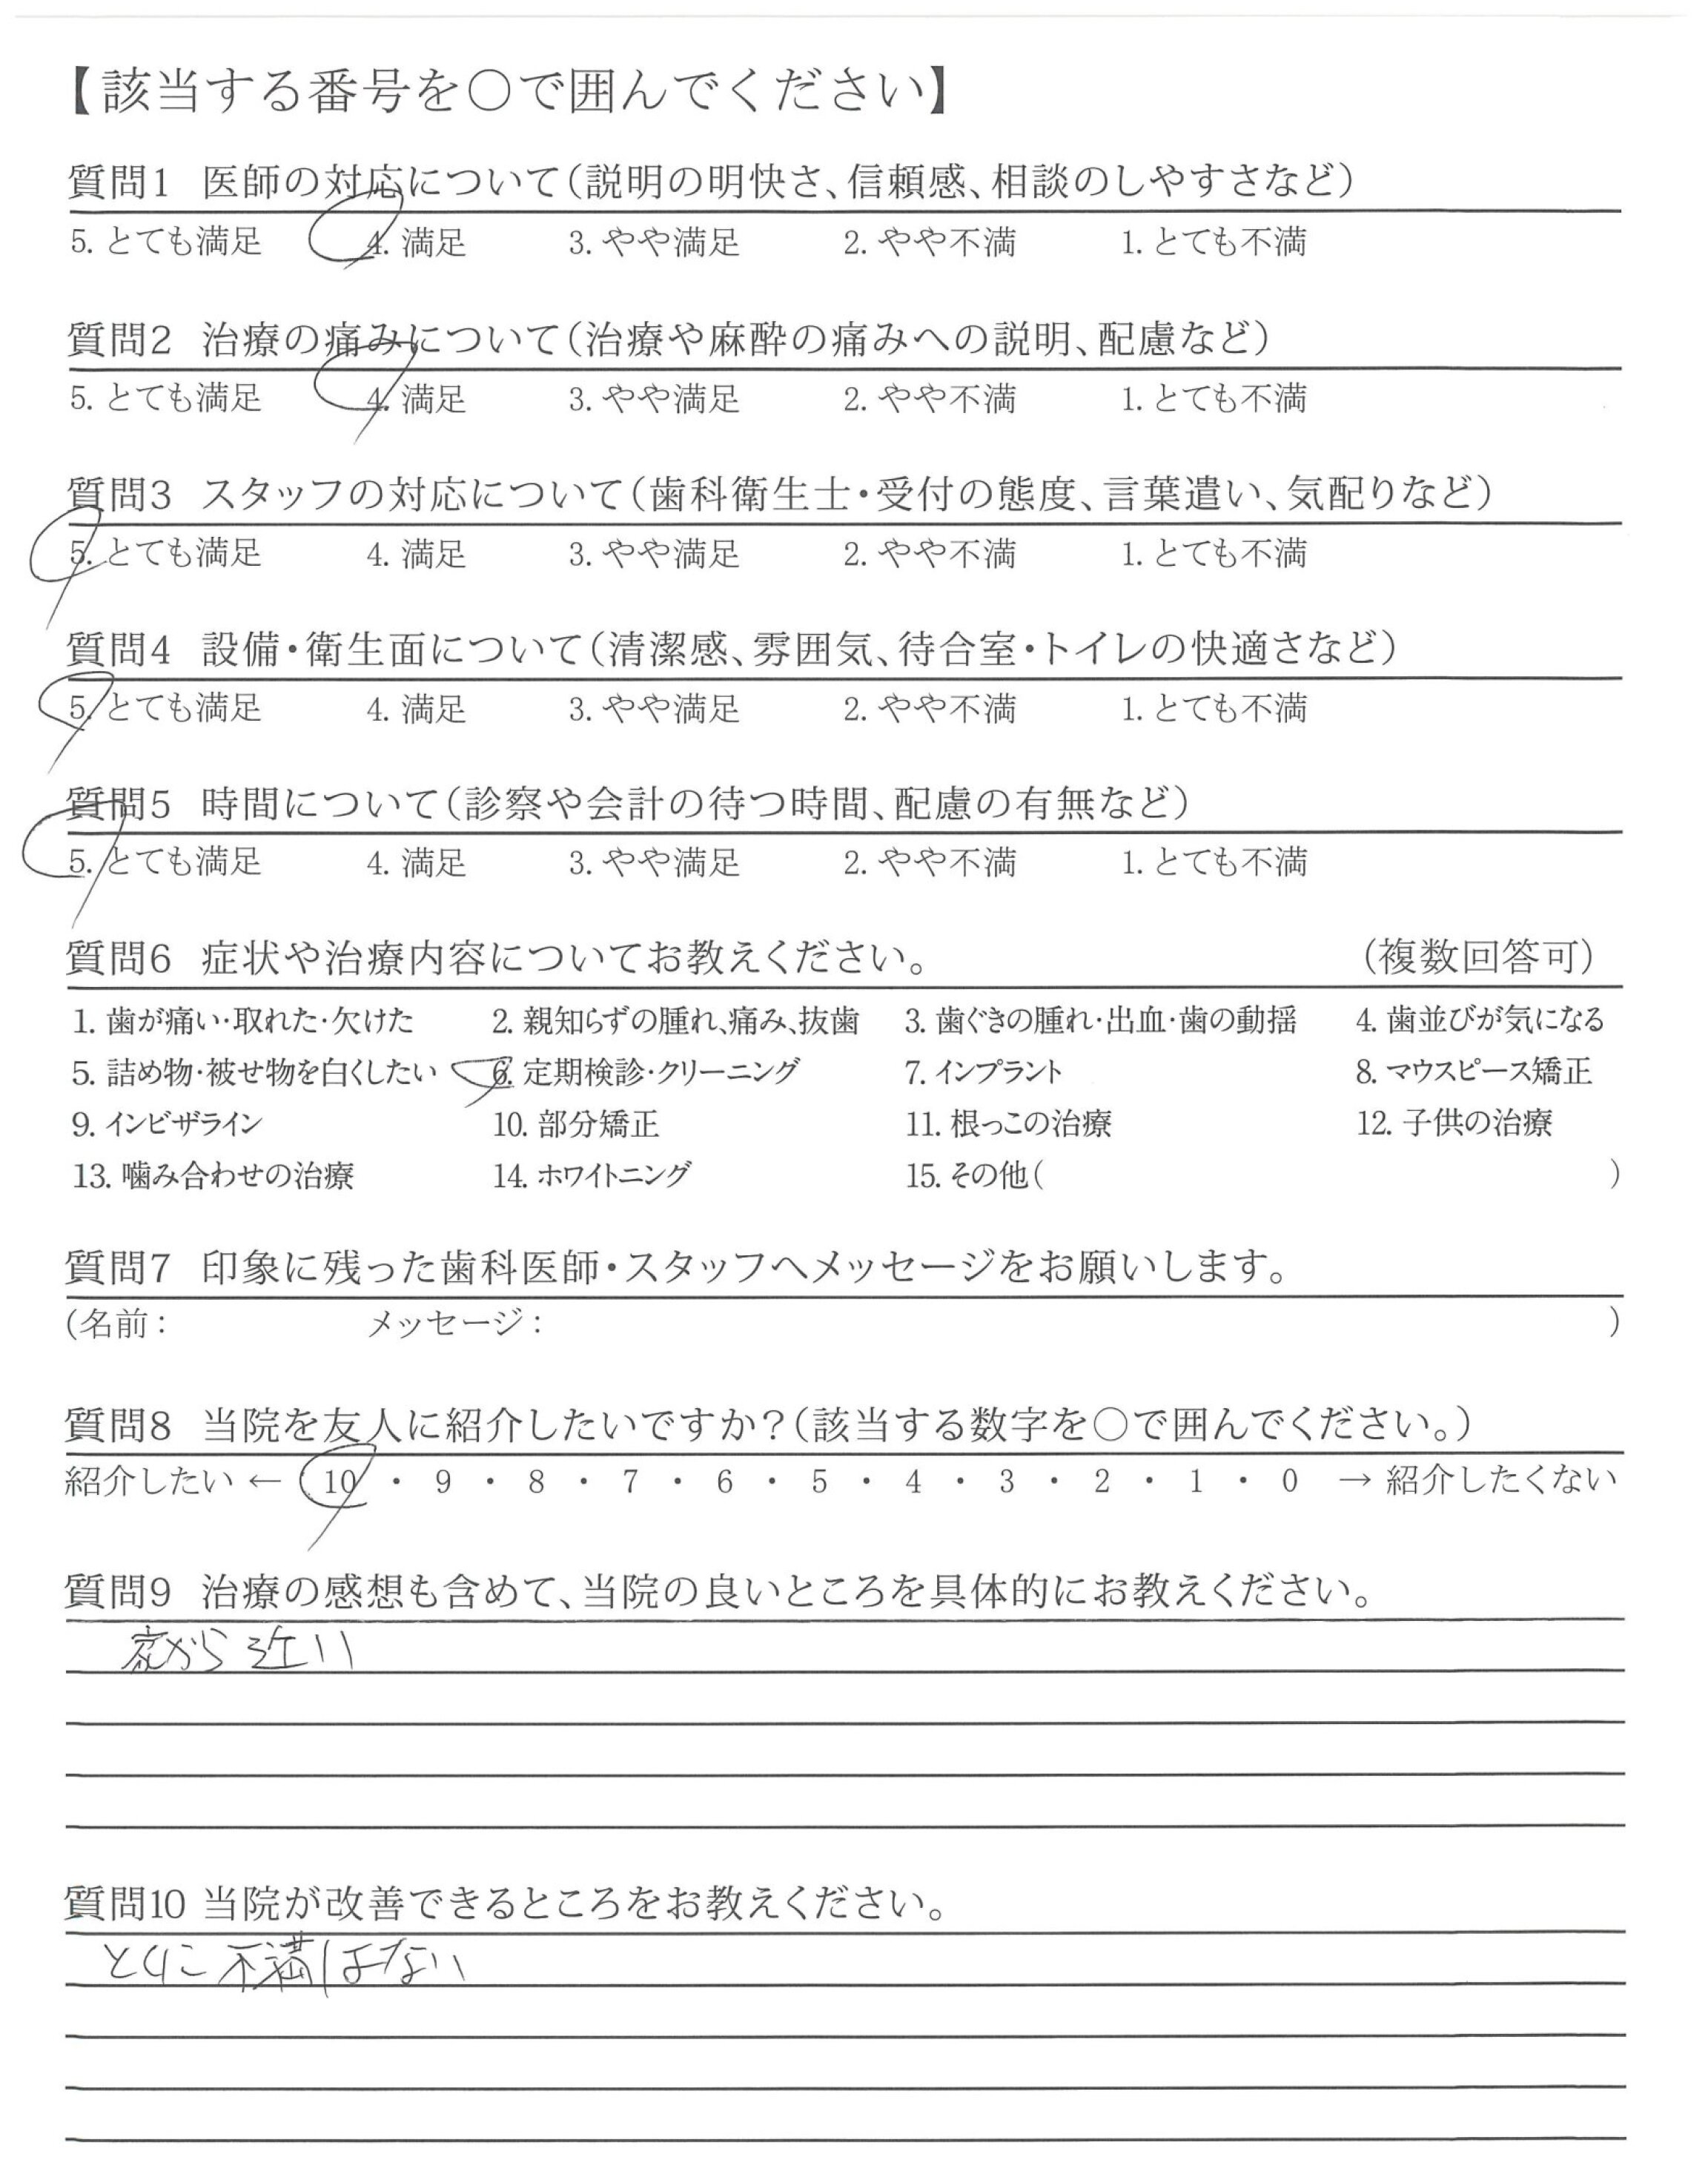 【該当する番号を○で囲んでください】
質問1 医師の対応について(説明の明快さ、信頼感、相談のしやすさなど)
5. とても満足 4. 満足 3. やや満足 2. やや不満 1. とても不満
質問2 治療の痛みについて(治療や麻酔の痛みへの説明、配慮など)
5. とても満足 4. 満足 3. やや満足 2. やや不満 1. とても不満
質問3 スタッフの対応について(歯科衛生士・受付の態度、言葉遣い、気配りなど)
5. とても満足 4. 満足 3. やや満足 2. やや不満 1. とても不満
質問4 設備・衛生面について(清潔感、雰囲気、待合室・トイレの快適さなど)
5. とても満足 4. 満足 3. やや満足 2. やや不満 1. とても不満
質問5 時間について(診察や会計の待つ時間、配慮の有無など)
5. とても満足 4. 満足 3. やや満足 2. やや不満 1. とても不満
質問6 症状や治療内容についてお教えください。 (複数回答可)
1. 歯が痛い・取れた・欠けた 2. 親知らずの腫れ、痛み、抜歯 3. 歯ぐきの腫れ・出血・歯の動揺 4. 歯並びが気になる
5. 詰め物・被せ物を白くしたい 6. 定期検診・クリーニング 7. インプラント 8. マウスピース矯正
9. インビザライン 10. 部分矯正 11. 根っこの治療 12. 子供の治療
13. 噛み合わせの治療 14. ホワイトニング 15. その他( )
質問7 印象に残った歯科医師・スタッフへメッセージをお願いします。
(名前: メッセージ: )
質問8 当院を友人に紹介したいですか?(該当する数字を○で囲んでください。)
紹介したい ← 10 ・ 9 ・ 8 ・ 7 ・ 6 ・ 5 ・ 4 ・ 3 ・ 2 ・ 1 ・ 0 → 紹介したくない
質問9 治療の感想も含めて、当院の良いところを具体的にお教えください。
家から近い
質問10 当院が改善できるところをお教えください。
とくに不満はない